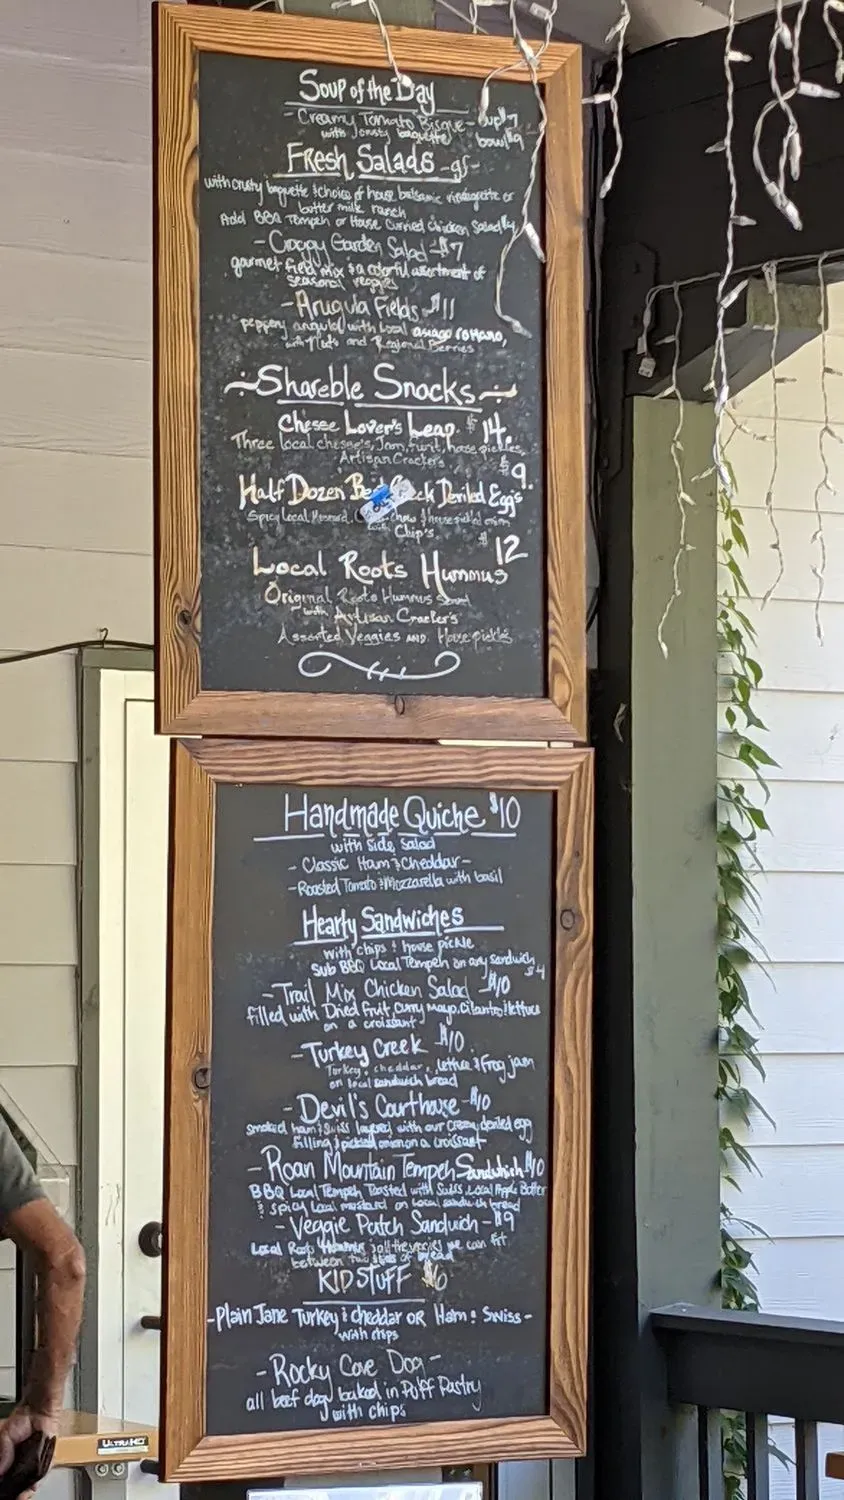 Soup of the Day
- Creamy Tomato Bisque - cup $7
with crusty baguette bowl $9
Fresh Salads -gf-
with crusty baguette & choice of house balsamic vinaigrette or
butter milk ranch
Add BBQ Tempeh or House Curried Chicken Salad $4
- Craggy Garden Salad - $7
gourmet field mix & a colorful assortment of
seasonal veggies
- Arugula Fields - $11
peppery arugula with Local asiago romano,
with Nuts and Regional Berries
~ Shareble Snocks ~
Chesse Lover's Leap. $14.
Three local cheeses, Jam, fruit, house pickles,
Artisan Cracker's
$9.
Half Dozen Deviled Eggs
Spicy Local Mustard, chow & house pickled onion
with Chip's.
$12
Local Roots Hummus
Original Roots Hummus Served
with Artisan Cracker's
Assorted Veggies AND House pickles
Handmade Quiche $10
with side salad
- Classic Ham & Cheddar -
- Roasted Tomato & Mozzarella with basil
Hearty Sandwiches
with chips & house pickle
Sub BBQ Local Tempeh on any sandwich
$4
- Trail Mix Chicken Salad - $10
filled with Dried Fruit, Curry mayo, Cilantro & lettuce
on a croissant
- Turkey Creek - $10
Turkey, cheddar, lettuce & frog jam
on local sandwich bread
- Devil's Courthouse - $10
smoked ham & swiss layered with our creamy deviled egg
filling & pickled onion on a croissant
- Roan Mountain Tempeh Sandwhich $10
BBQ Local Tempeh Toasted with Swiss, Local Apple Butter
& spicy local mustard on local sandwich bread
- Veggie Patch Sandwich - $9
Local Roots Hummus & all the veggies we can fit
between two slices of bread
KID STUFF $6
- Plain Jane Turkey & cheddar OR Ham & Swiss -
with chips
- Rocky Cove Dog -
all beef dog baked in Puff Pastry
with chips
ULTRA HD